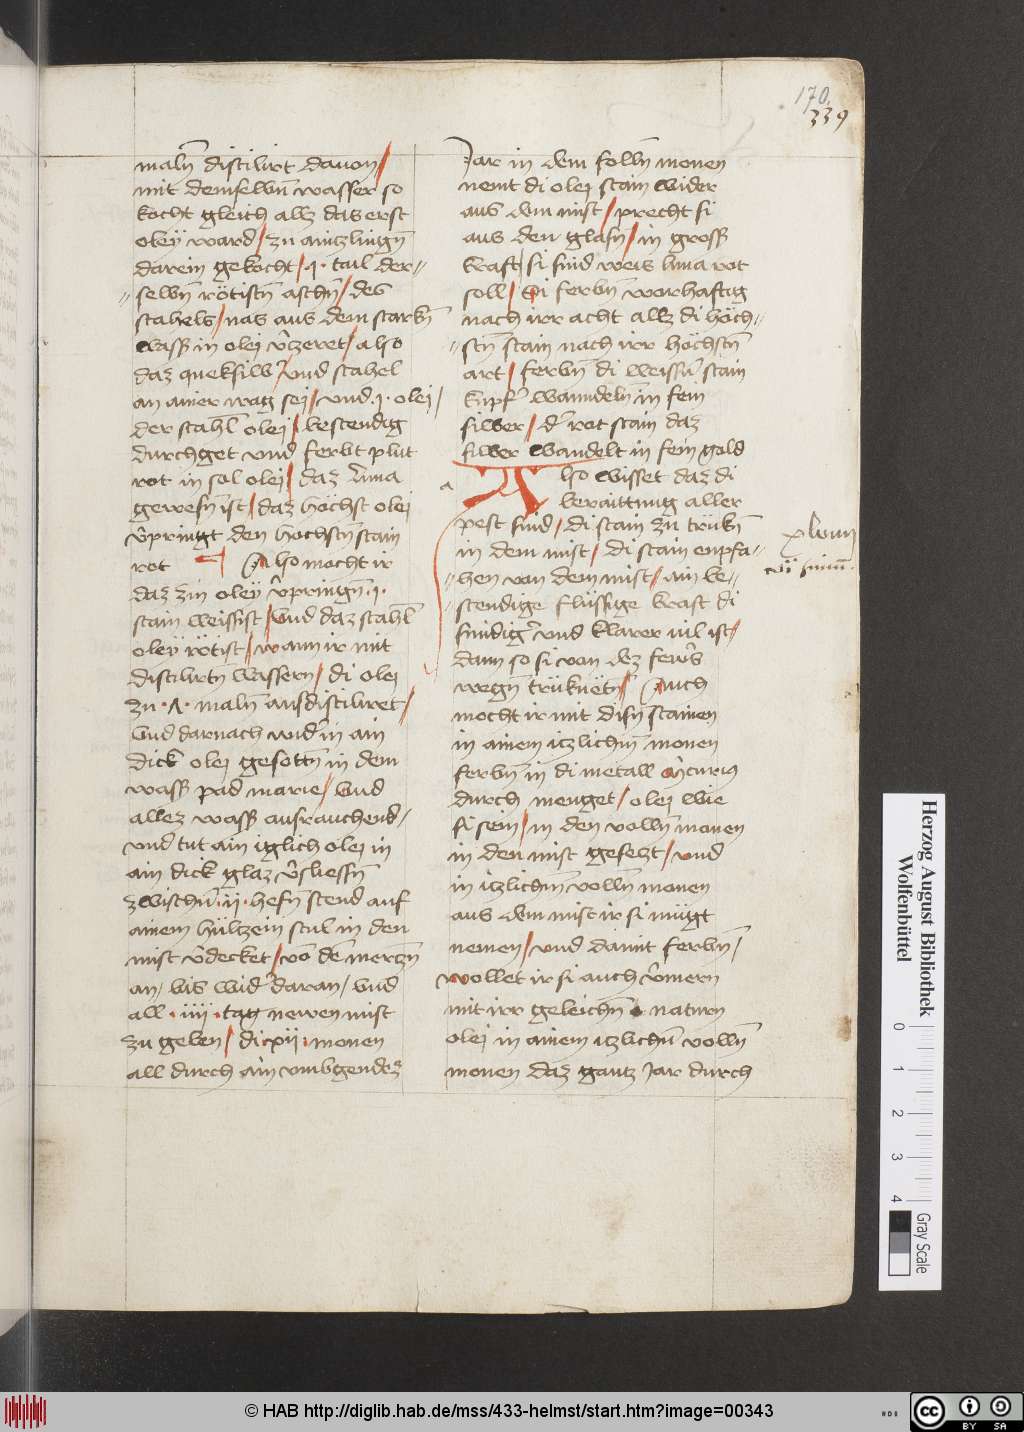 170.
339
maln̄ distilirt dauon /
mit demselbn̄ wasser so
kocht gleich allz das erst
oleÿ ward / zu ainczlingn̄
darein gekocht / .1. tail der=
selbn̄ rötistn̄ aschn̄ / des
stahels / nas aus dem starkn̄
wass̄ in olei v̄czeret / also
daz queksilb̄ und stahel
an ainer wag sei / vnd .1. olei /
der stahl̄ olei / bestendig
durchget vnd ferbt plut
rot in sol olei / daz luna
gewesn̄ ist / daz höchst olei
v̄pringt den hochstn̄ stain
rot Also mocht ir
daz zin oleÿ v̄pringn̄ .1.
stain weissist / vnd daz stahl̄
oleÿ rötist / wann ir mit
distilirtn̄ wassern / di olei
zu .Λ. maln̄ ausdistiliret /
vnd darnach wid̄ in ain
dick olei gesottn̄ in dem
wass̄ pad marie / vnd
allez wass̄ ausrauchend /
vnd tut ain iglich olei in
ain dick glaz v̄sliessn̄
zwischn̄ .ii. hefn̄ stend auf
ainem hültzein stul in den
mist v̄decket / vō dē merczn̄
an / bis wid̄ daran / vnd
all .iiii. tag newen mist
zu geben / di xii monen
all durch ain vmbgendez
Jar in dem folln̄ monen
nemt di olei stain wider
aus dem mist / precht si
aus den glasn̄ / in gross̄
kraft si sind weis luna rot
soll / Si ferbn̄ warhaftig
nach irr acht allz di höch=
stn̄ stain nach irr höchstn̄
art / ferbn̄ di weissn̄ stain
kupf̄ wanndeln̄ in fein
silber / d̄ rot stain daz
silber wandelt in fein gold
Also wisset daz di
beraittung aller
pest sind / di stain zu trükn̄
in dem mist / di stain enpfa=
hen von dem mist / ain be=
stendige flüssige krast di
sindiḡ vnd klarer vil ist /
dann so si von dez fewrs
wegn̄ trüknetn̄ / Auch
mocht ir mit disn̄ stainen
in ainem iczlichn̄ monen
ferbn̄ in di metall m̄curiꝰ
durch menget / olei wie
si sein / in den volln̄ monen
in den mist gesetzt / vnd
in iczlichm̄ volln̄ monen
aus dem mist ir si mügt
nemen / vnd damit ferbn̄ /
wollet ir si auch v̄mern
mit irr geleichn̄ naturn
olei in ainem iczlichn̄ volln̄
monen daz gantz Jar durch
Herzog August Bibliothek
Wolfenbüttel
0
1
2
3
4
Gray Scale
© HAB http://diglib.hab.de/mss/433-helmst/start.htm?image=00343
HAB
cc BY SA